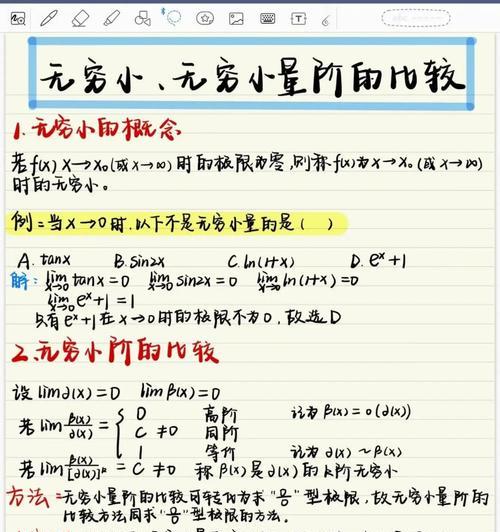 无穷小、无穷小量阶的比较
1.无穷小的概念
若f(x) x→x₀(或x→∞)时的极限为零,则称f(x)为x→x₀(或x→∞)
时的无穷小。
例=当x→0时,以下不是无穷小量的是( )
A. tanx B. sin2x C. ln(1+x) D. eˣ+1
解: lim x→0 tanx=0 lim x→0 sin2x=0 lim x→0 ln(1+x)=0
lim x→0 eˣ+1=1
只有eˣ+1在x→0时的极限不为0,故选D
2.无穷小阶的比较
设 lim∂(x)=0 lim β(x)=0
若lim β(x)/∂(x) = { 0 高阶 记为 β(x)=0(∂(x))
C≠0 同阶
1 等价 记为 ∂(x)~β(x)
若lim β(x)/[∂(x)]ᵏ = C≠0 称 β(x)是∂(x)的k阶无穷小
方法=无穷小量阶的比较可转化为求"0/0"型极限,故无穷小量阶的
比较方法同求"0/0"型极限的方法。